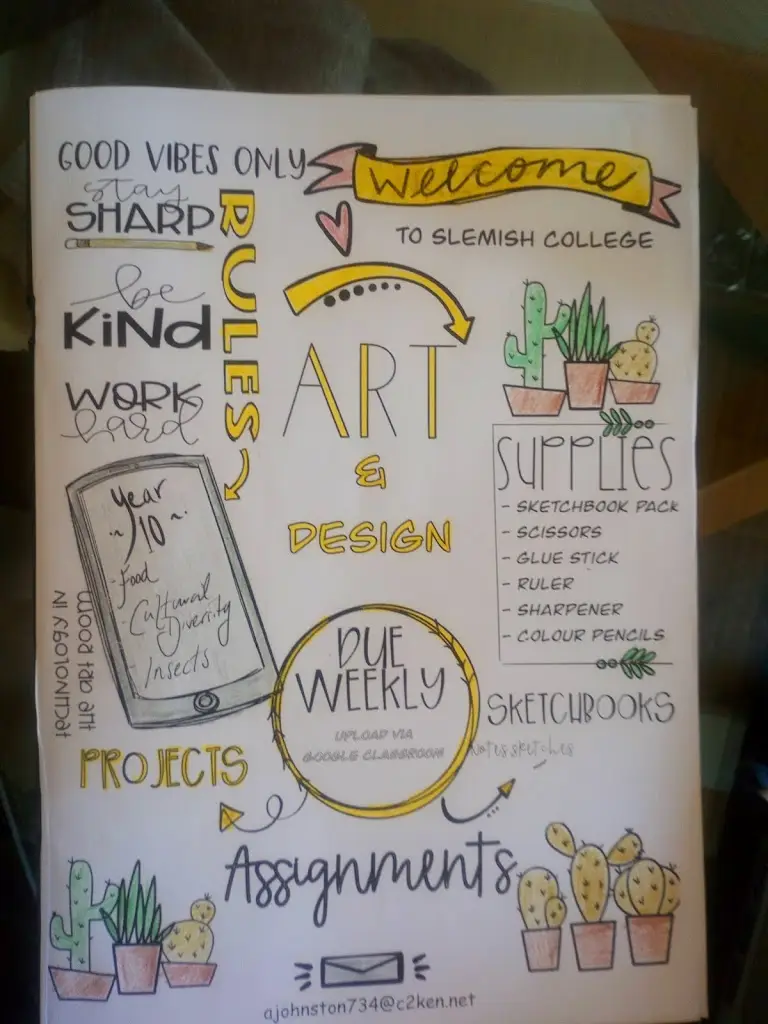 GOOD VIBES ONLY
stay
SHARP
be
KiNd
WORK
hard
RULES
welcome
TO SLEMISH COLLEGE
ART
&
DESIGN
SUPPLIES
- SKETCHBOOK PACK
- SCISSORS
- GLUE STICK
- RULER
- SHARPENER
- COLOUR PENCILS
Year
~ 10 ~
- Food
- Cultural
Diversity
- Insects
TECHNOLOGY IN
THE ART ROOM
DUE
WEEKLY
UPLOAD VIA
GOOGLE CLASSROOM
SKETCHBOOKS
Notes sketches
PROJECTS
Assignments
ajohnston734@c2ken.net